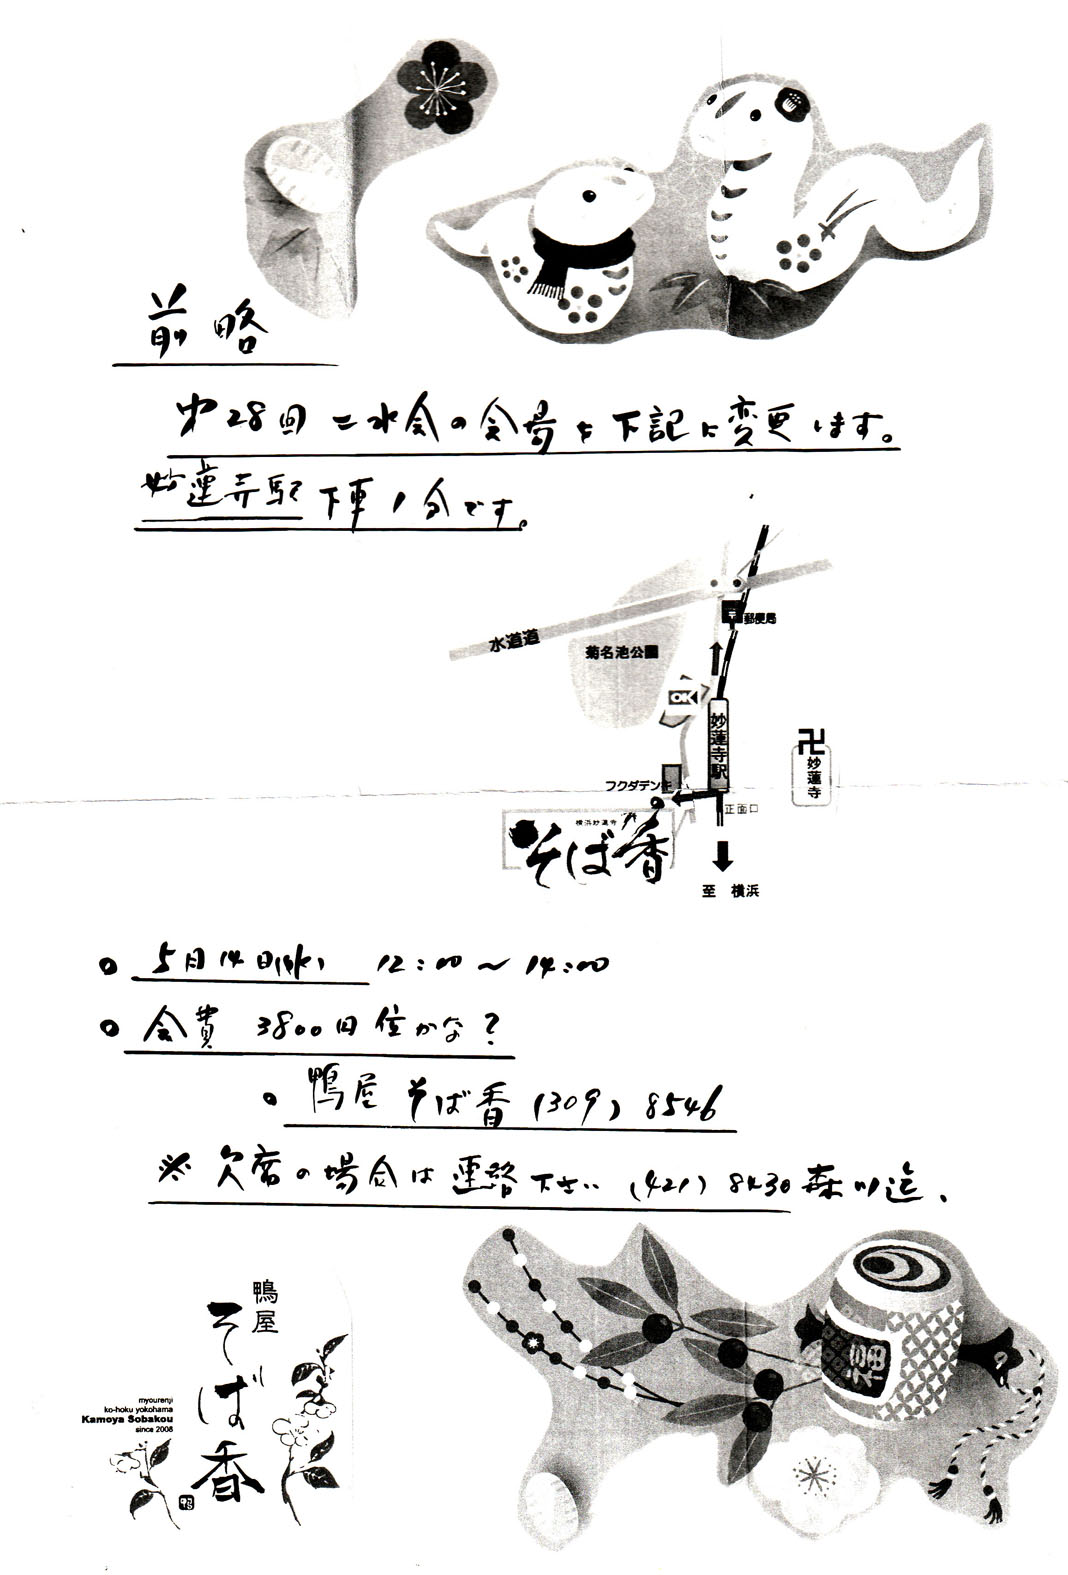 前略
第28回二水会の会場を下記に変更します。
妙蓮寺駅下車1分です。
水道道
郵便局
菊名池公園
OK
妙蓮寺駅
妙蓮寺
フクダデンキ
正面口
横浜妙蓮寺
そば香
至 横浜
5月14日(水) 12:00〜14:00
会費 3800円位かな?
鴨屋 そば香 (309) 8546
※欠席の場合は連絡下さい (421) 8430 森川迄、
福
鴨屋
そば香
myourenji
ko-hoku yokohama
Kamoya Sobakou
since 2008